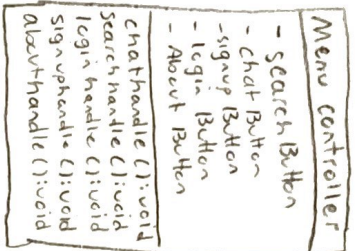 Menu controller
- search Button
- chat Button
- signup Button
- login Button
- About Button
chathandle():void
searchhandle():void
loginhandle():void
signuphandle():void
abouthandle():void